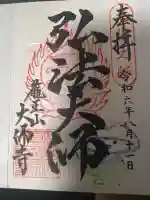 奉拝
令和六年八月十一日
弘法大師
大師寺